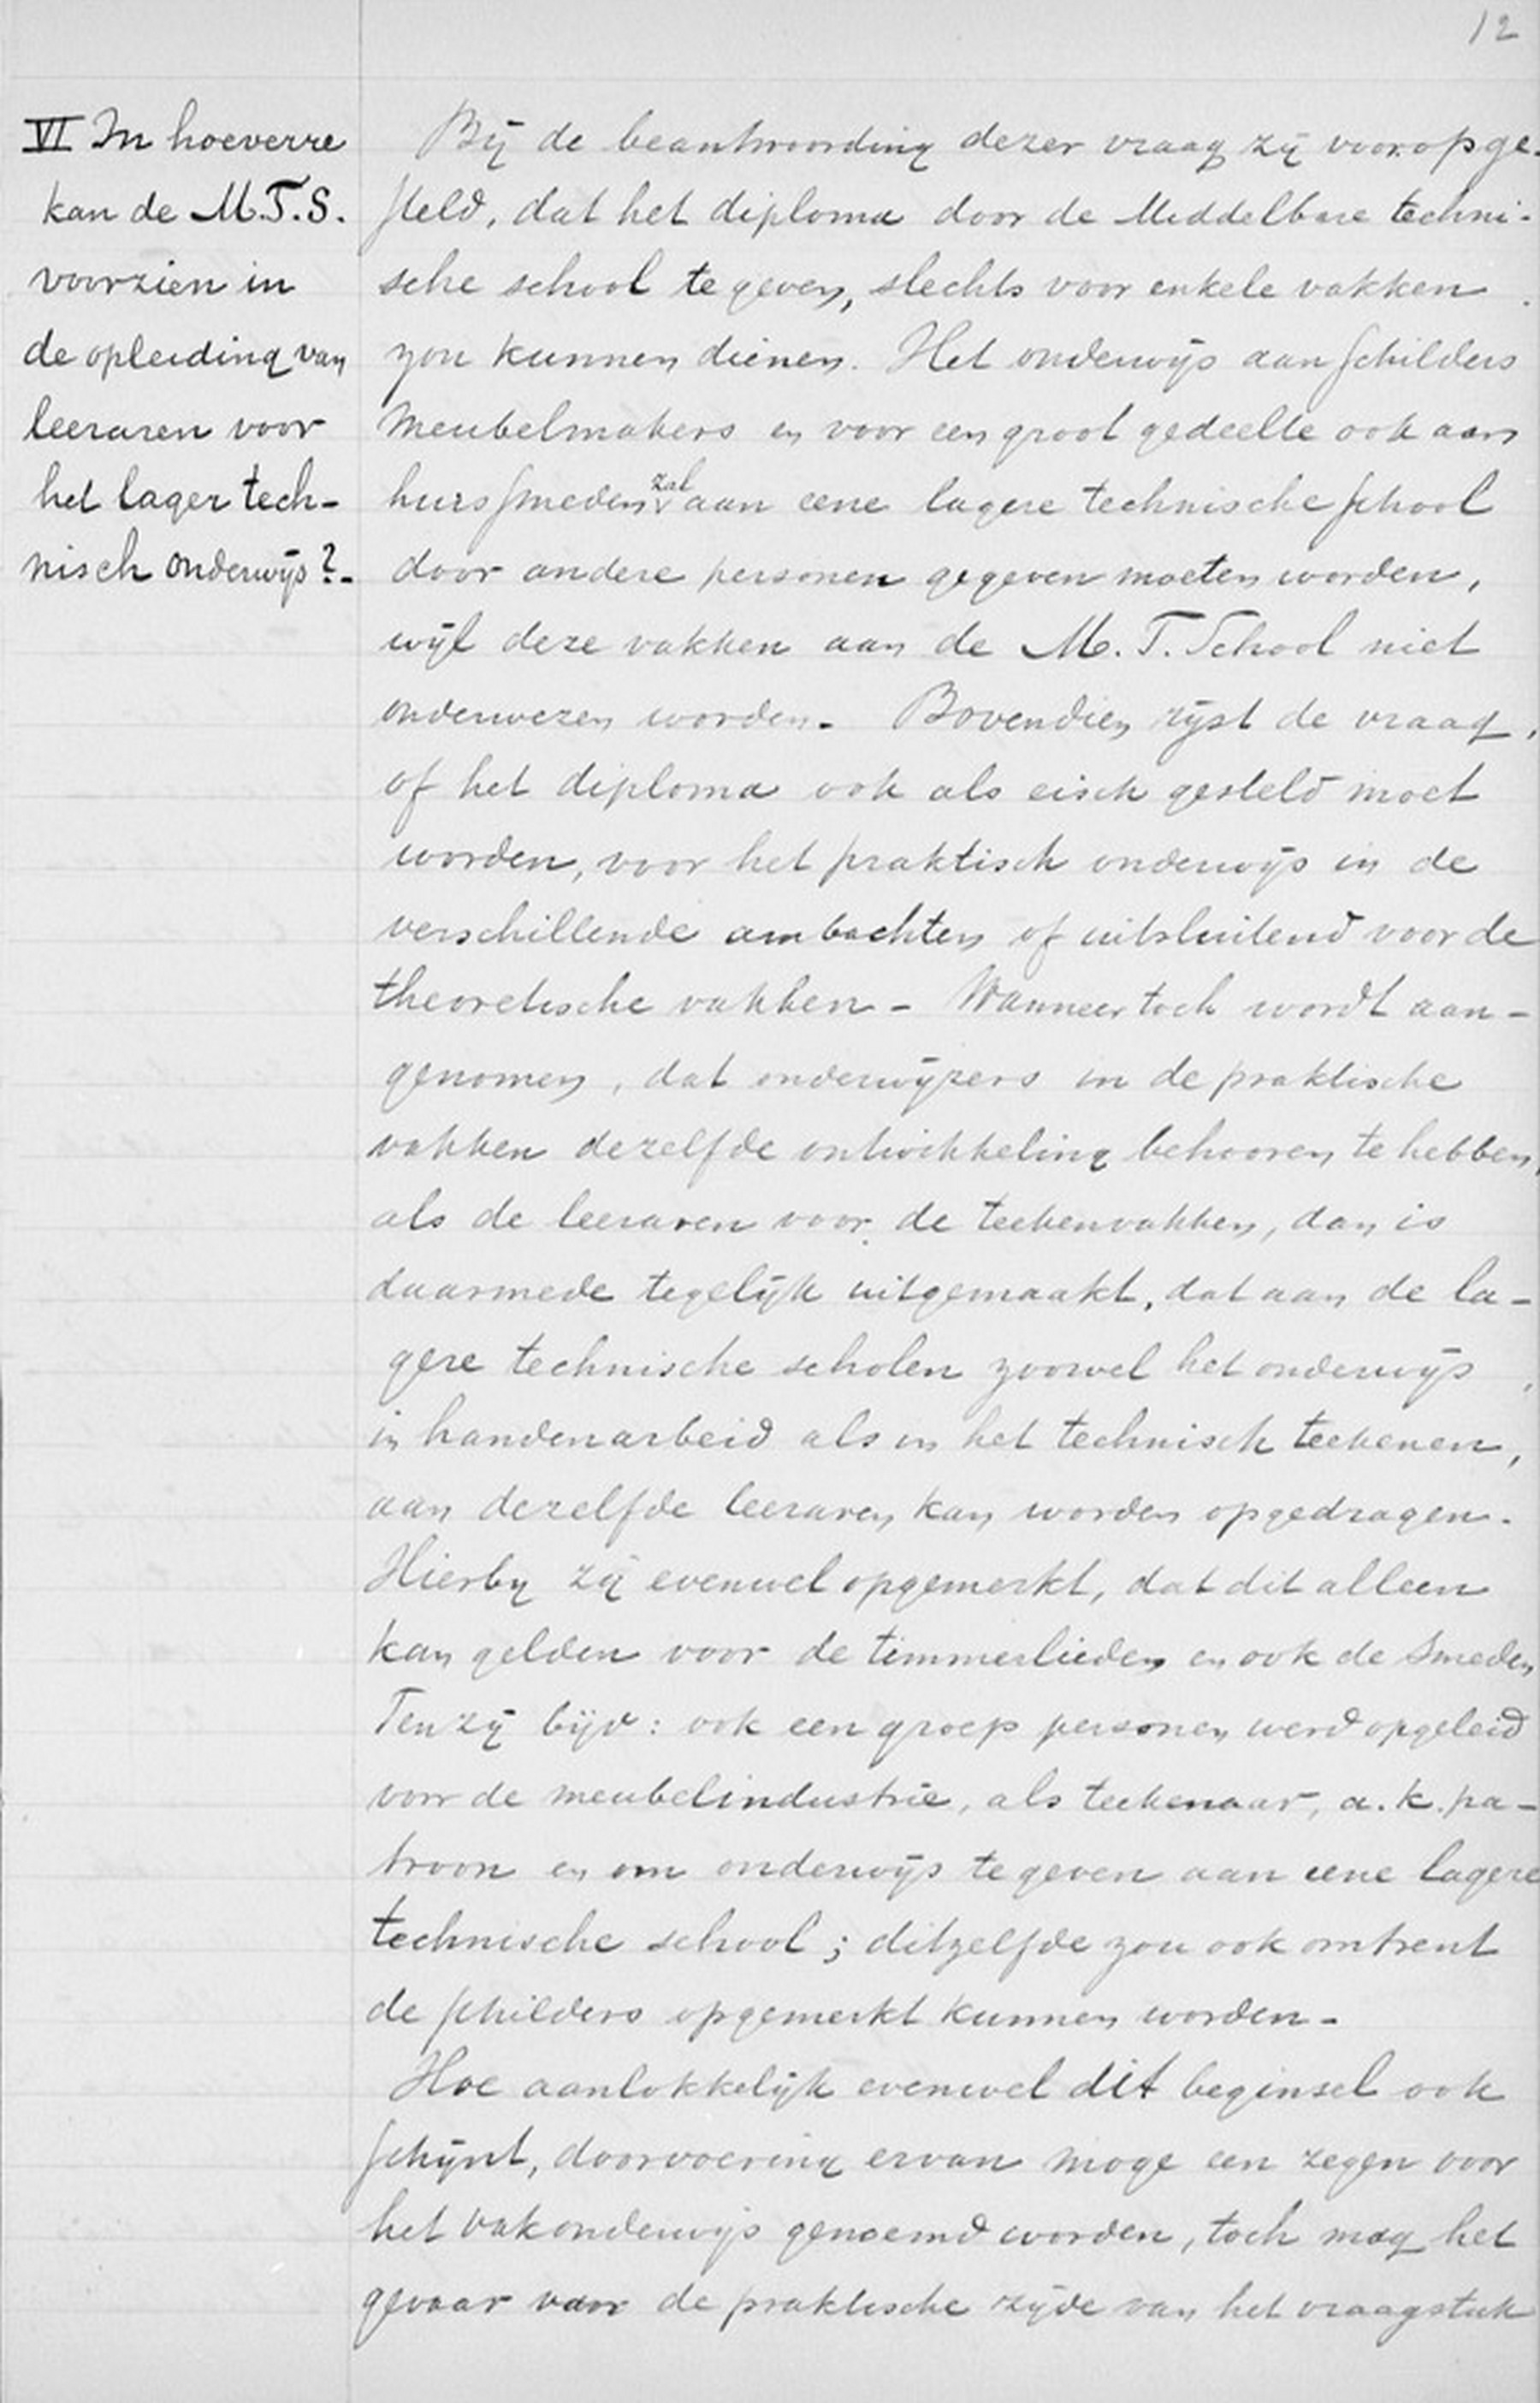 12
VI In hoeverre
kan de M.T.S.
voorzien in
de opleiding van
leeraren voor
het lager tech-
nisch onderwijs?-
Bij de beantwoording dezer vraag zij vooropge-
steld, dat het diploma door de Middelbare techni-
sche school te geven, slechts voor enkele vakken
zou kunnen dienen. Het onderwijs aan schilders
meubelmakers en voor een groot gedeelte ook aan
huissmeden zal aan eene lagere technische school
door andere personen gegeven moeten worden,
wijl deze vakken aan de M. T. School niet
onderwezen worden. Bovendien rijst de vraag,
of het diploma ook als eisch gesteld moet
worden, voor het praktisch onderwijs in de
verschillende ambachten of uitsluitend voor de
theoretische vakken - Wanneer toch wordt aan-
genomen, dat onderwijzers in de praktische
vakken dezelfde ontwikkeling behooren te hebben,
als de leeraren voor de teekenvakken, dan is
daarmede tegelijk uitgemaakt, dat aan de la-
gere technische scholen zoowel het onderwijs
in handenarbeid als in het technisch teekenen,
aan dezelfde leeraren kan worden opgedragen.
Hierby zij evenwel opgemerkt, dat dit alleen
kan gelden voor de timmerlieden en ook de smeden
Tenzij bijv: ook een groep personen werd opgeleid
voor de meubelindustrie, als teekenaar, a.k. pa-
troon en om onderwijs te geven aan eene lagere
technische school; ditzelfde zou ook omtrent
de schilders opgemerkt kunnen worden-
Hoe aanlokkelijk evenwel dit beginsel ook
schijnt, doorvoering ervan moge een zegen voor
het vakonderwijs genoemd worden, toch mag het
gevaar voor de praktische zijde van het vraagstuk